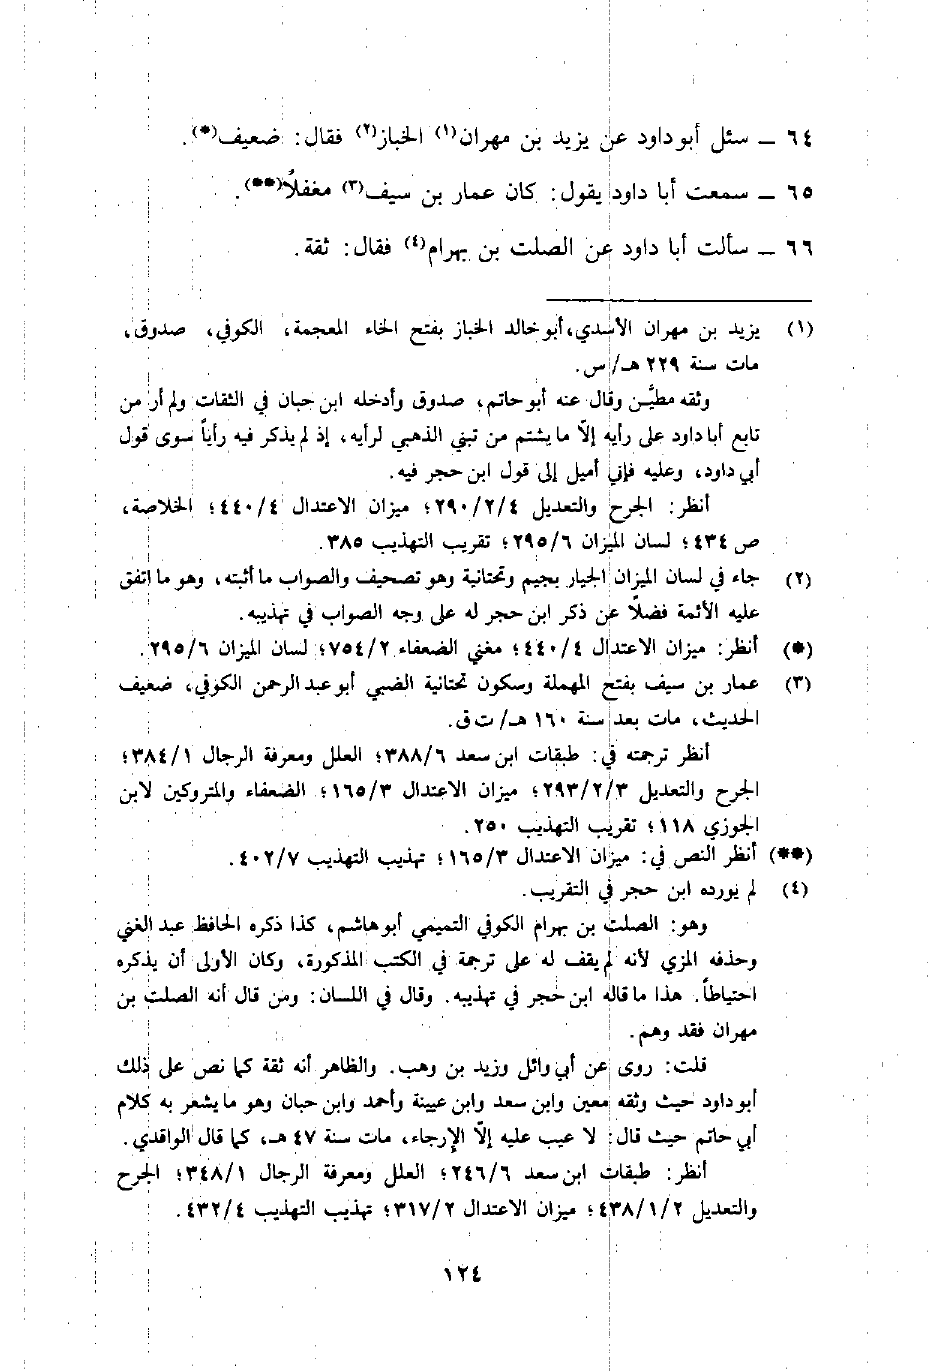 ٦٤ ــ سئل أبو داود عن يزيد بن مهران(١) الخباز(٢) فقال: ضعيف(*).
٦٥ ــ سمعت أبا داود يقول: كان عمار بن سيف(٣) مغفلاً(**).
٦٦ ــ سألت أبا داود عن الصلت بن بهرام(٤) فقال: ثقة.
(١) يزيد بن مهران الأسدي، أبو خالد الخباز بفتح الخاء المعجمة، الكوفي، صدوق،
مات سنة ٢٢٩ هـ/ س.
وثقه مطيَّن وقال عنه أبو حاتم، صدوق وأدخله ابن حبان في الثقات ولم أر من
تابع أبا داود على رأيه إلّا ما يشتم من تبني الذهبي لرأيه، إذ لم يذكر فيه رأياً سوى قول
أبي داود، وعليه فإني أميل إلى قول ابن حجر فيه.
أنظر: الجرح والتعديل ٢٩٠/٢/٤؛ ميزان الاعتدال ٤٤٠/٤؛ الخلاصة،
ص ٤٣٤؛ لسان الميزان ٢٩٥/٦؛ تقريب التهذيب ٣٨٥.
(٢) جاء في لسان الميزان الجيار بجيم وتحتانية وهو تصحيف والصواب ما أثبته، وهو ما اتفق
عليه الأئمة فضلاً عن ذكر ابن حجر له على وجه الصواب في تهذيبه.
(*) أنظر: ميزان الاعتدال ٤٤٠/٤؛ مغني الضعفاء ٧٥٤/٢؛ لسان الميزان ٢٩٥/٦.
(٣) عمار بن سيف بفتح المهملة وسكون تحتانية الضبي أبو عبد الرحمن الكوفي، ضعيف
الحديث، مات بعد سنة ١٦٠ هـ/ ت ق.
أنظر ترجمته في: طبقات ابن سعد ٣٨٨/٦؛ العلل ومعرفة الرجال ٣٨٤/١؛
الجرح والتعديل ٢٩٣/٢/٣؛ ميزان الاعتدال ١٦٥/٣؛ الضعفاء والمتروكين لابن
الجوزي ١١٨؛ تقريب التهذيب ٢٥٠.
(**) أنظر النص في: ميزان الاعتدال ١٦٥/٣؛ تهذيب التهذيب ٤٠٢/٧.
(٤) لم يورده ابن حجر في التقريب.
وهو: الصلت بن بهرام الكوفي التميمي أبو هاشم، كذا ذكره الحافظ عبد الغني
وحذفه المزي لأنه لم يقف له على ترجمة في الكتب المذكورة، وكان الأولى أن يذكره
احتياطاً. هذا ما قاله ابن حجر في تهذيبه. وقال في اللسان: ومن قال أنه الصلت بن
مهران فقد وهم.
قلت: روى عن أبي وائل وزيد بن وهب. والظاهر أنه ثقة كما نص على ذلك
أبو داود حيث وثقه معين وابن سعد وابن عيينة وأحمد وابن حبان وهو ما يشعر به كلام
أبي حاتم حيث قال: لا عيب عليه إلّا الإرجاء، مات سنة ٤٧ هـ، كما قال الواقدي.
أنظر: طبقات ابن سعد ٢٤٦/٦؛ العلل ومعرفة الرجال ٣٤٨/١؛ الجرح
والتعديل ٤٣٨/١/٢؛ ميزان الاعتدال ٣١٧/٢؛ تهذيب التهذيب ٤٣٢/٤.
١٢٤